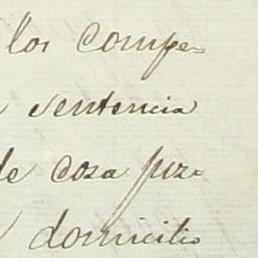 los compe=
sentencia
de cosa juz=
domicilio